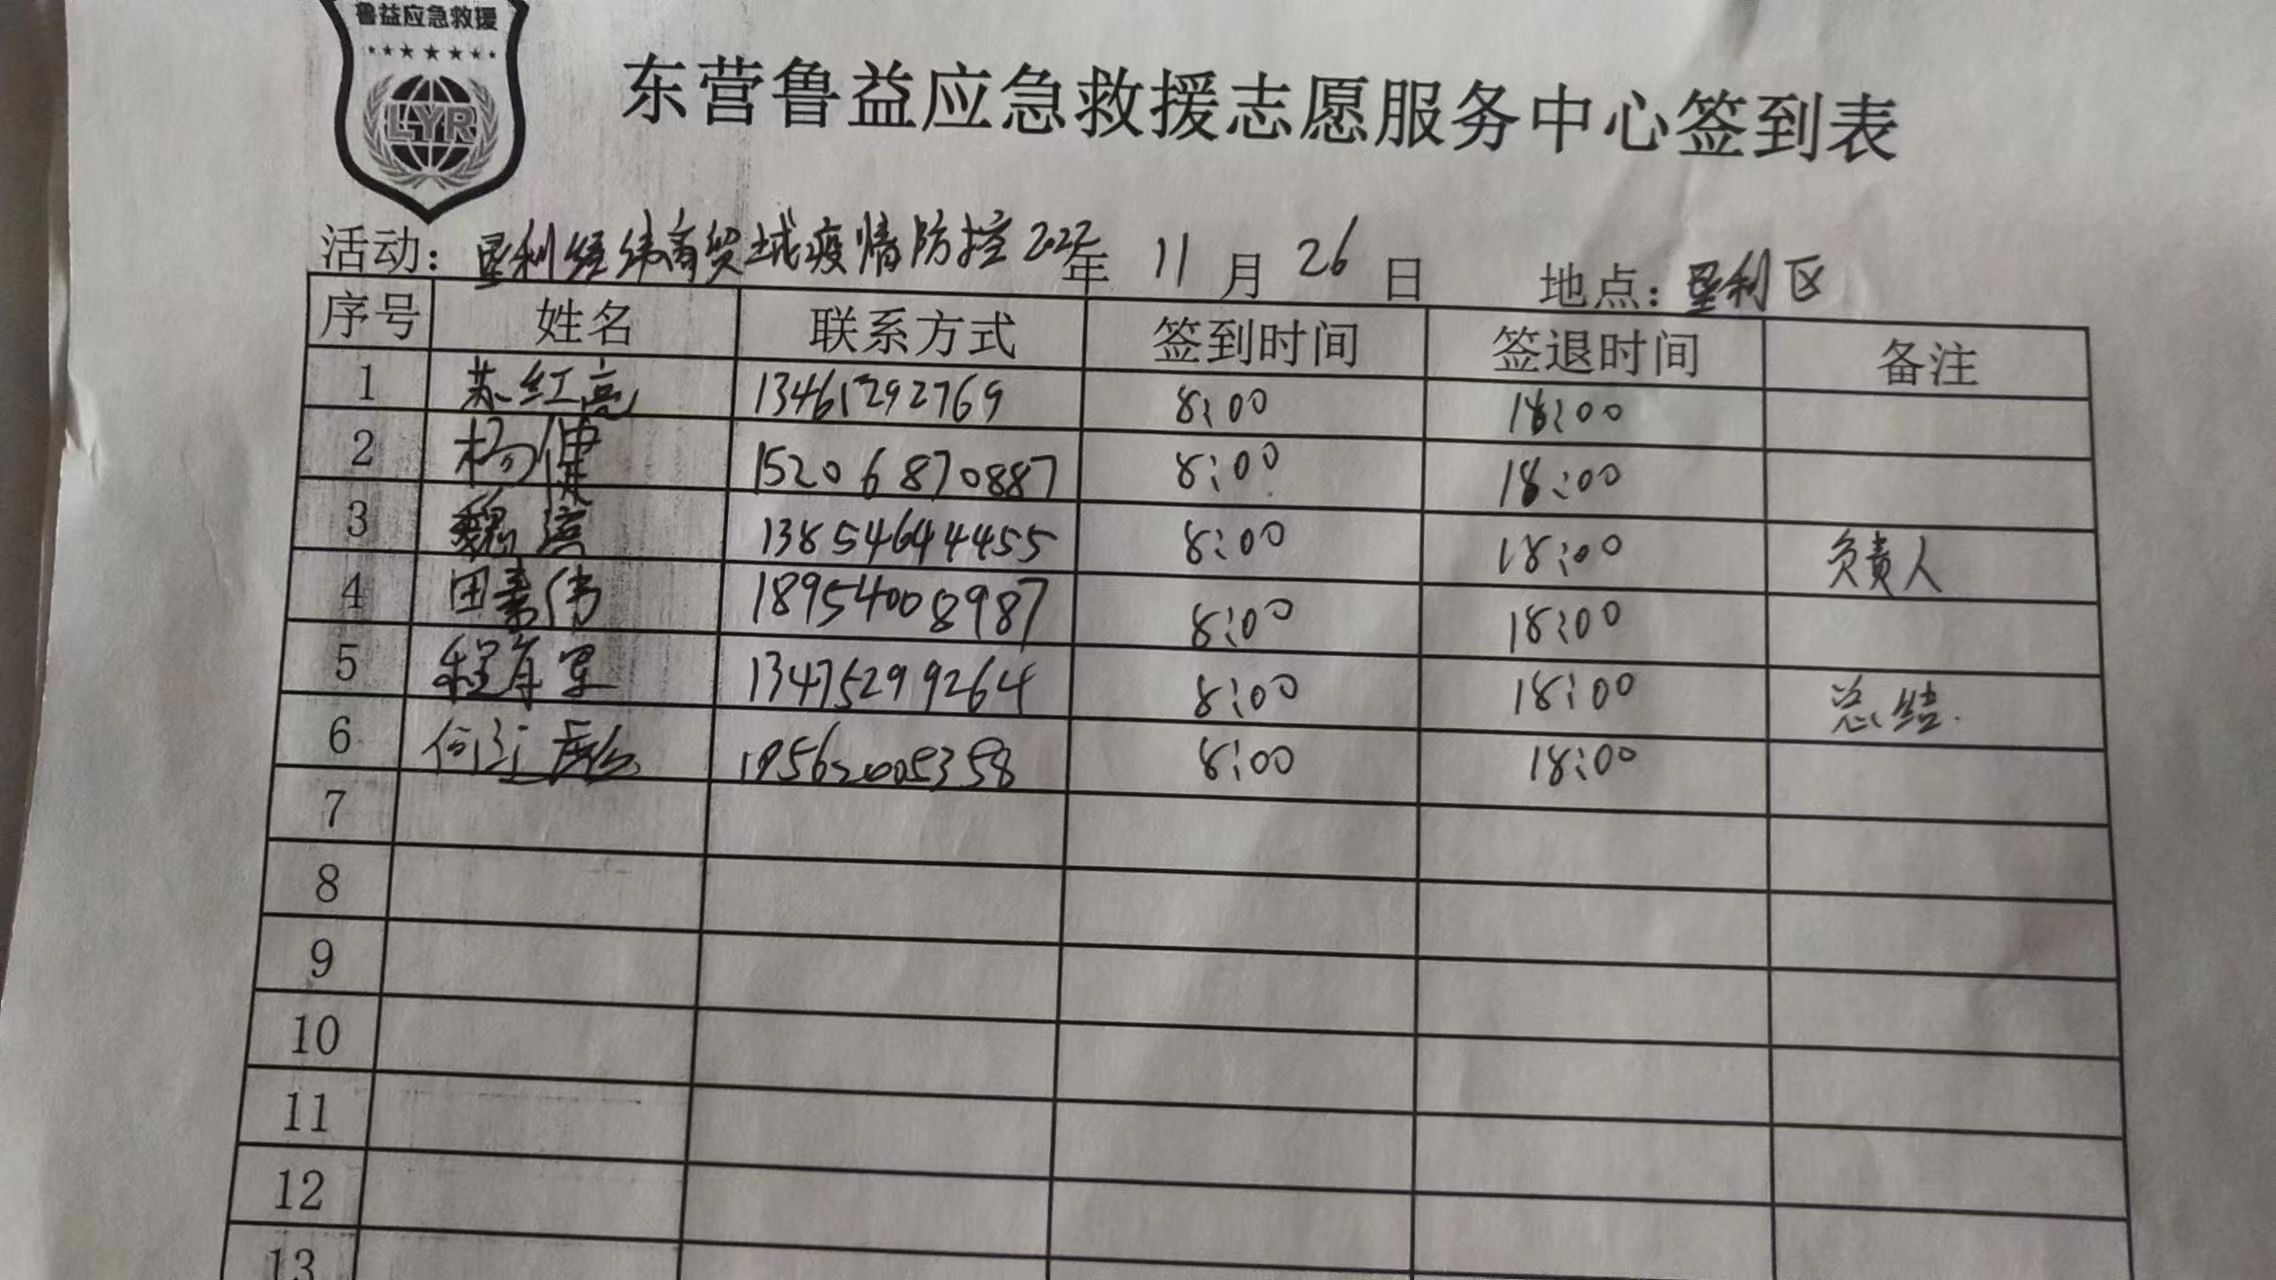 鲁益应急救援
LYR
东营鲁益应急救援志愿服务中心签到表
活动：垦利经纬商贸城疫情防控2022年 11月 26日 地点：垦利区
序号 姓名 联系方式 签到时间 签退时间 备注
1 苏红亮 13461292769 8:00 18:00
2 杨健 15206870887 8:00 18:00
3 魏滨 13854644455 8:00 18:00 负责人
4 田素伟 18954008987 8:00 18:00
5 程有军 13475299264 8:00 18:00 总结.
6 8:00 18:00
7
8
9
10
11
12
13